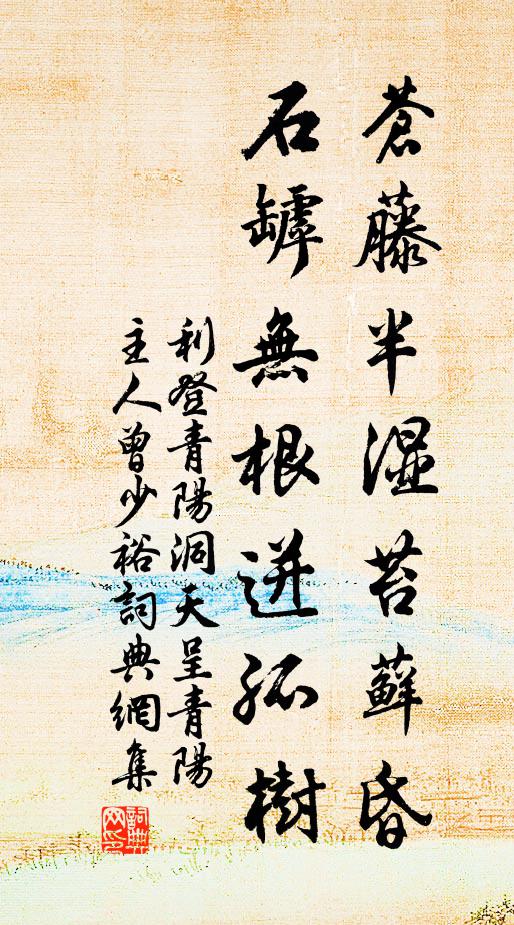 蒼藤半湿苔蘚昏
石罅無根迸孤樹
利登青陽洞天呈青陽
主人曾少裕詞典網集
詞典网印